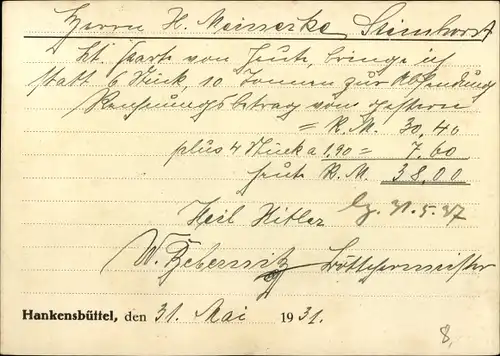 Herrn H. Meinecke, Steinhorst
Lt. Karte von heute, bringe ich
statt 6 Stück, 10 Tonnen zur Absendung
Rechnungsbetrag vom gestern
= R.M. 30,40
plus 4 Stück a 1.90 = 7.60
heute R.M. 38,00
Heil Hitler bz. 31.5.37
W. Böttchermeister
Hankensbüttel, den 31. Mai 1931.
8,